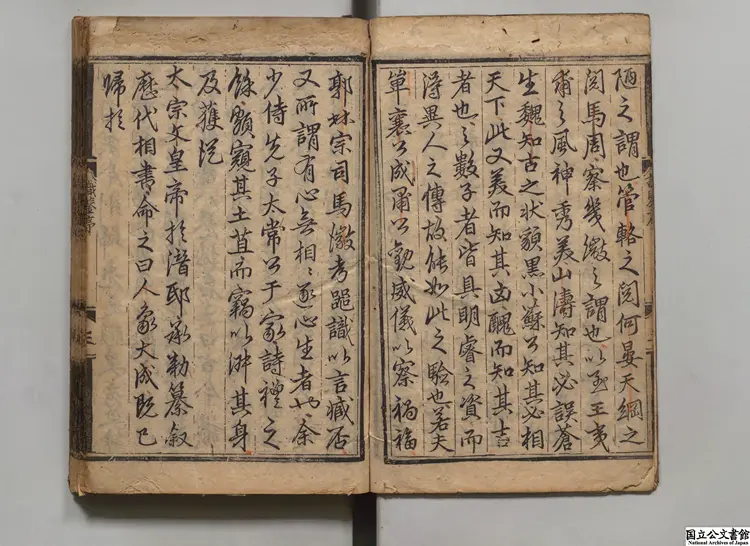 陋之謂也管輅之閱何晏天綱之
閱馬周察幾微之謂也以至王夷
甫之風神秀美山濤知其必誤蒼
生魏知古之狀貌黒小蘇公知其必相
天下此又美而知其凶醜而知其吉
者也之數子者皆具明睿之資而
得異人之傳故能如此之驗也若夫
單襄公成肅公觀威儀以察禍福
郭林宗司馬徽考識以言臧否
又所謂有心無相〻逐心生者也余
少侍先子太常公于家詩禮之
餘窺其土苴而竊以淑其身
及獲從
太宗文皇帝於潜邸承勅纂叙
歷代相書命之曰人象大成既已
歸於
国立公文書館
National Archives of Japan